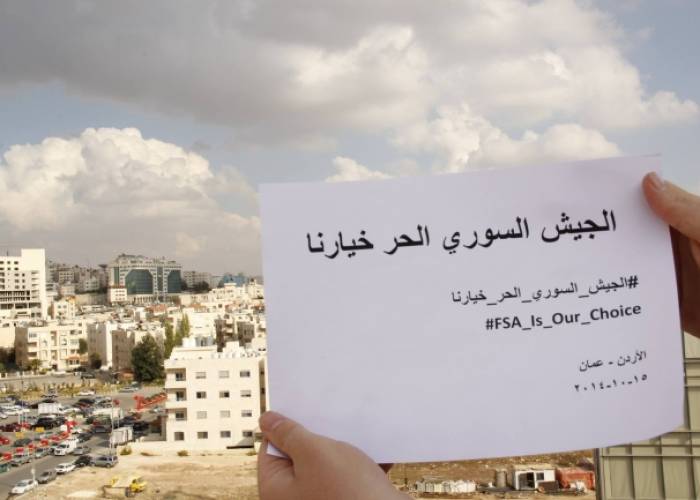 الجيش السوري الحر خيارنا
#الجيش_السوري_الحر_خيارنا
#FSA_Is_Our_Choice
الأردن - عمان
١٥-١٠-٢٠١٤